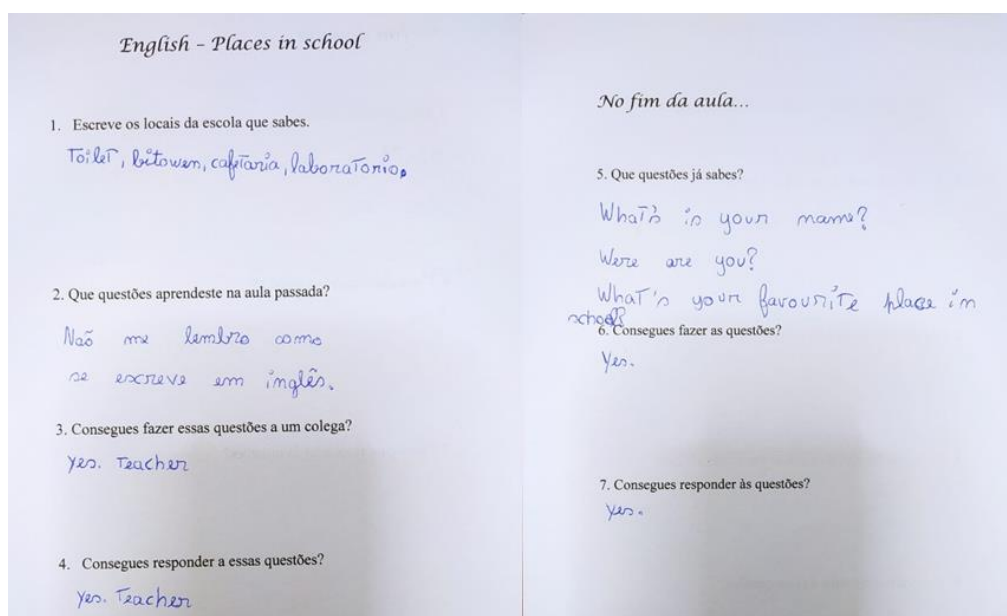 English - Places in school
1. Escreve os locais da escola que sabes.
Toilet, bitowen, cafetaria, laboratorio.
2. Que questões aprendeste na aula passada?
Naõ me lembro como
se escreve em inglês.
3. Consegues fazer essas questões a um colega?
Yes. Teacher
4. Consegues responder a essas questões?
Yes. Teacher
No fim da aula...
5. Que questões já sabes?
What's is your name?
Were are you?
What's your favourite place in
school?
6. Consegues fazer as questões?
Yes.
7. Consegues responder às questões?
Yes.